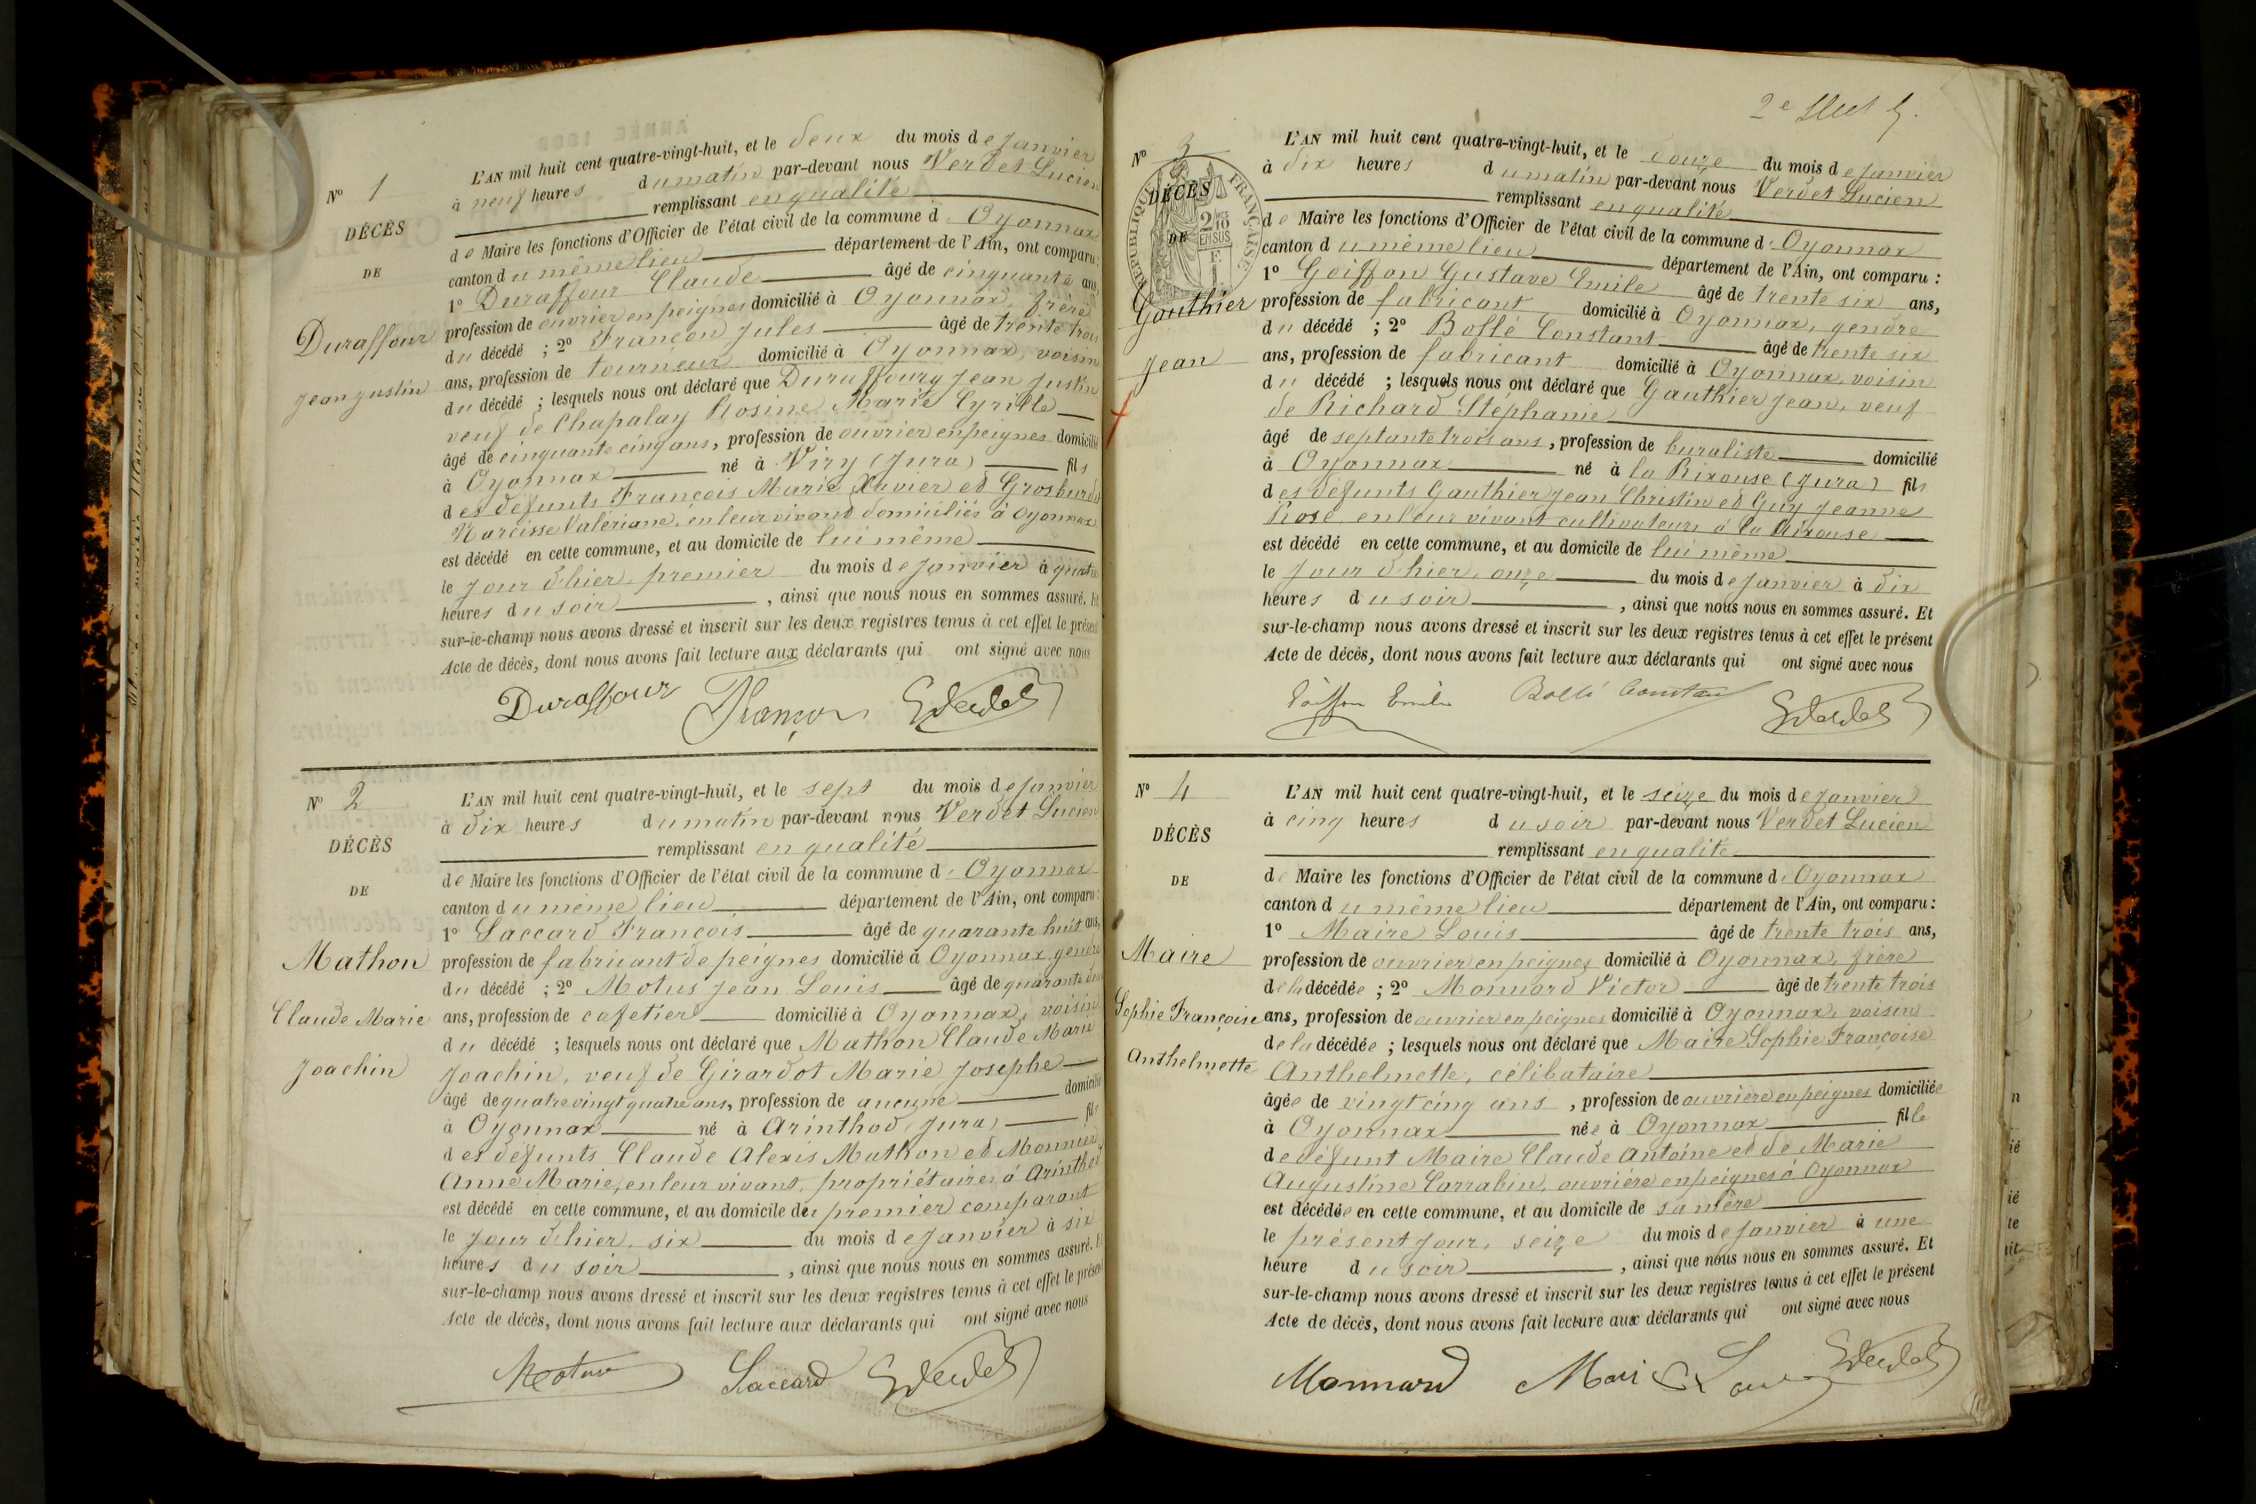 N° 1
DÉCÈS
DE
Duraffour
Jean Justin
L'AN mil huit cent quatre-vingt-huit, et le deux du mois de Janvier
à neuf heures du matin par-devant nous Verdet Lucien
remplissant en qualité
de Maire les fonctions d'Officier de l'état civil de la commune d' Oyonnax
canton du même lieu département de l'Ain, ont comparu :
1° Duraffour Claude âgé de cinquante ans,
profession de ouvrier en peignes domicilié à Oyonnax, frère
du décédé ; 2° Françon Jules âgé de trente trois
ans, profession de tourneur domicilié à Oyonnax, voisin
du décédé ; lesquels nous ont déclaré que Duraffourg Jean Justin
veuf de Chapalay Rosine Marie Cyrille
âgé de cinquante cinq ans, profession de ouvrier en peignes domicilié
à Oyonnax né à Viry (Jura) fils
des défunts François Marie Xavier et Grosburdet
Narcisse Valériane, en leur vivant domiciliés à Oyonnax
est décédé en cette commune, et au domicile de lui même
le jour d'hier, premier du mois de Janvier à quatre
heures du soir , ainsi que nous nous en sommes assuré. Et
sur-le-champ nous avons dressé et inscrit sur les deux registres tenus à cet effet le présent
Acte de décès, dont nous avons fait lecture aux déclarants qui ont signé avec nous
Duraffour Françon Verdet
N° 2
DÉCÈS
DE
Mathon
Claude Marie
Joachin
L'AN mil huit cent quatre-vingt-huit, et le sept du mois de Janvier
à dix heures du matin par-devant nous Verdet Lucien
remplissant en qualité
de Maire les fonctions d'Officier de l'état civil de la commune d' Oyonnax
canton du même lieu département de l'Ain, ont comparu :
1° Laccard François âgé de quarante huit ans,
profession de fabricant de peignes domicilié à Oyonnax, gendre
du décédé ; 2° Motus Jean Louis âgé de quarante deux
ans, profession de cafetier domicilié à Oyonnax, voisin
du décédé ; lesquels nous ont déclaré que Mathon Claude Marie
Joachin, veuf de Girardot Marie Josephe
âgé de quatre vingt quatre ans, profession de aucune domicilié
à Oyonnax né à Arinthod (Jura) fils
des défunts Claude Alexis Mathon et Monnier
Anne Marie, en leur vivant, propriétaires à Arinthod
est décédé en cette commune, et au domicile du premier comparant
le jour d'hier, six du mois de Janvier à six
heures du soir , ainsi que nous nous en sommes assuré. Et
sur-le-champ nous avons dressé et inscrit sur les deux registres tenus à cet effet le présent
Acte de décès, dont nous avons fait lecture aux déclarants qui ont signé avec nous
Motus Laccard Verdet
2e
N° 3
DÉCÈS
DE
RÉPUBLIQUE FRANÇAISE
Gauthier
Jean
L'AN mil huit cent quatre-vingt-huit, et le douze du mois de Janvier
à dix heures du matin par-devant nous Verdet Lucien
remplissant en qualité
de Maire les fonctions d'Officier de l'état civil de la commune d' Oyonnax
canton du même lieu département de l'Ain, ont comparu :
1° Goiffon Gustave Emile âgé de trente six ans,
profession de fabricant domicilié à Oyonnax, gendre
du décédé ; 2° Bollé Constant âgé de trente six
ans, profession de fabricant domicilié à Oyonnax, voisin
du décédé ; lesquels nous ont déclaré que Gauthier Jean, veuf
de Richard Stéphanie
âgé de septante trois ans, profession de buraliste domicilié
à Oyonnax né à la Rixouse (Jura) fils
des défunts Gauthier Jean Christin et Guy Jeanne
Rose, en leur vivant cultivateurs à la Rixouse
est décédé en cette commune, et au domicile de lui même
le jour d'hier, onze du mois de Janvier à dix
heures du soir , ainsi que nous nous en sommes assuré. Et
sur-le-champ nous avons dressé et inscrit sur les deux registres tenus à cet effet le présent
Acte de décès, dont nous avons fait lecture aux déclarants qui ont signé avec nous
Goiffon Emile Bollé Constant Verdet
N° 4
DÉCÈS
DE
Maire
Sophie Françoise
Anthelmette
L'AN mil huit cent quatre-vingt-huit, et le seize du mois de Janvier
à cinq heures du soir par-devant nous Verdet Lucien
remplissant en qualité
de Maire les fonctions d'Officier de l'état civil de la commune d' Oyonnax
canton du même lieu département de l'Ain, ont comparu :
1° Maire Louis âgé de trente trois ans,
profession de ouvrier en peignes domicilié à Oyonnax, frère
de la décédée ; 2° Monnard Victor âgé de trente trois
ans, profession de ouvrier en peignes domicilié à Oyonnax, voisin
de la décédée ; lesquels nous ont déclaré que Maire Sophie Françoise
Anthelmette, célibataire
âgée de vingt cinq ans , profession de ouvrière en peignes domiciliée
à Oyonnax née à Oyonnax fille
de défunt Maire Claude Antoine et de Marie
Augustine Carrabin, ouvrière en peignes à Oyonnax
est décédée en cette commune, et au domicile de sa mère
le présent jour, seize du mois de Janvier à une
heure du soir , ainsi que nous nous en sommes assuré. Et
sur-le-champ nous avons dressé et inscrit sur les deux registres tenus à cet effet le présent
Acte de décès, dont nous avons fait lecture aux déclarants qui ont signé avec nous
Monnard Maire Louis Verdet